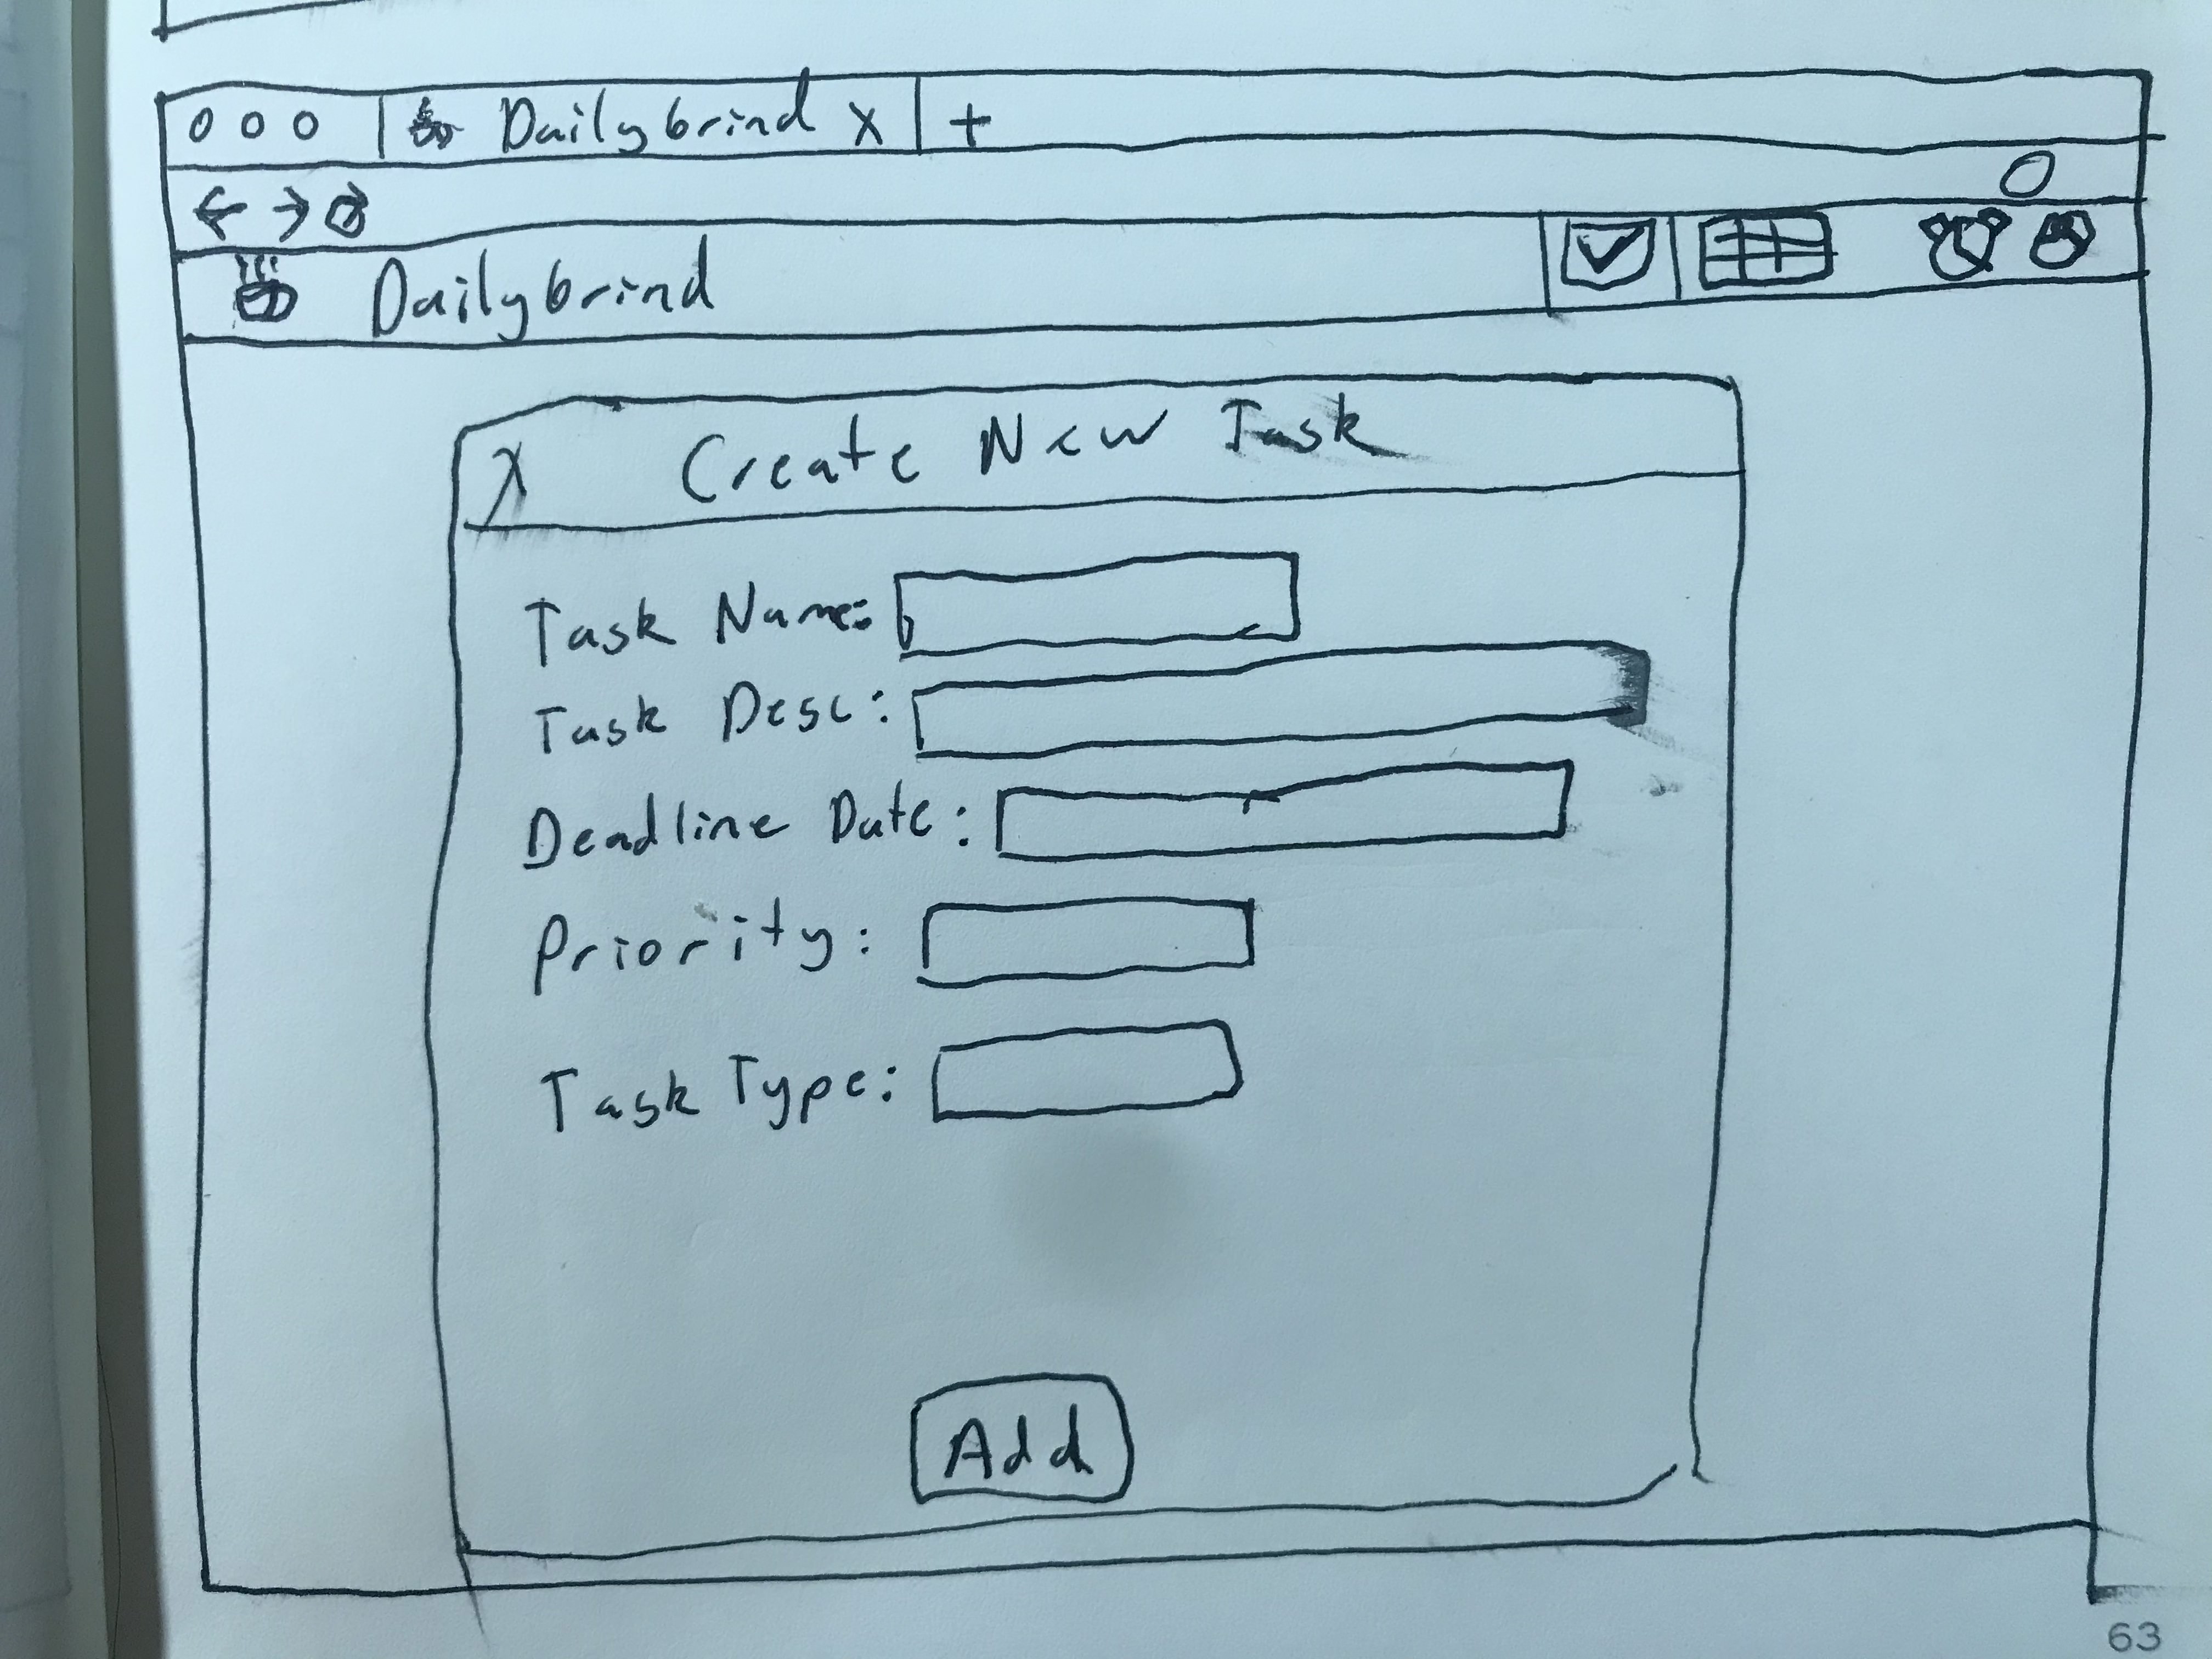 DailyGrind X +
DailyGrind
X Create New Task
Task Name:
Task Desc:
Deadline Date:
Priority:
Task Type:
Add
63